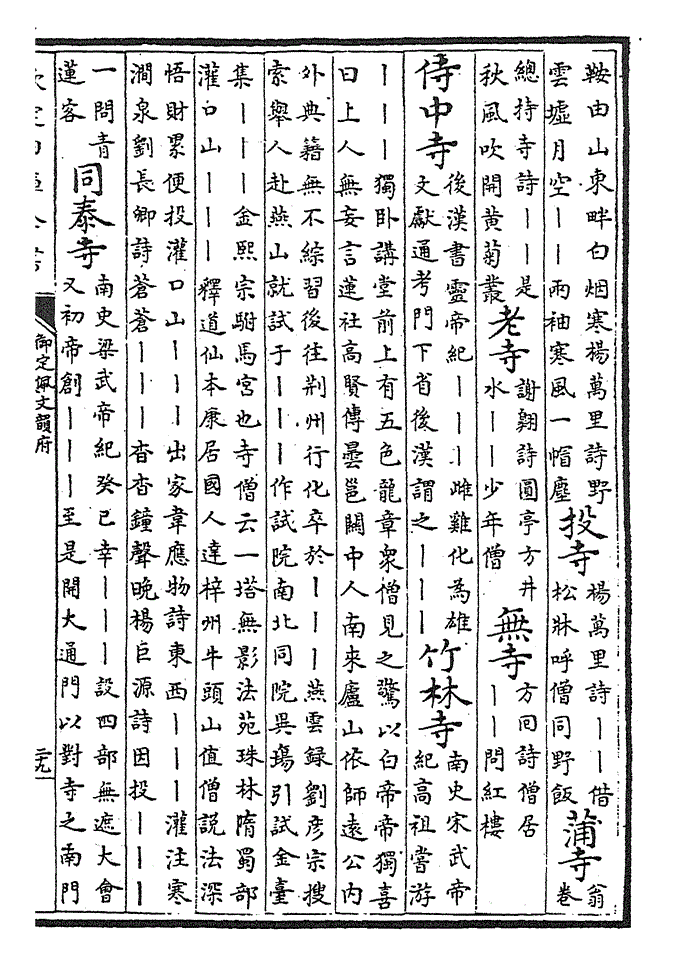 鞍由山東畔白烟寒楊萬里詩野
雲墟月空丨丨兩袖寒風一帽塵
投寺
楊萬里詩丨丨借
松牀呼僧同野飯
蒲寺
翁卷
總持寺詩丨丨是
秋風吹開黃菊叢
老寺
謝翺詩圓亭方井
水丨丨少年僧
無寺
方回詩僧居
丨丨問紅樓
侍中寺
後漢書靈帝紀丨丨丨雌雞化為雄
文獻通考門下省後漢謂之丨丨丨
竹林寺
南史宋武帝
紀高祖嘗游
丨丨丨獨卧講堂前上有五色龍章衆僧見之驚以白帝帝獨喜
曰上人無妄言蓮社高賢傳曇邕關中人南來廬山依師遠公内
外典籍無不綜習後往荆州行化卒於丨丨丨燕雲録劉彦宗搜
索舉人赴燕山就試于丨丨丨作試院南北同院吳瑒引試金臺
集丨丨丨金熙宗駙馬宮也寺僧云一塔無影法苑珠林隋蜀部
灌口山丨丨丨釋道仙本康居國人達梓州牛頭山值僧説法深
悟財累便投灌口山丨丨丨出家韋應物詩東西丨丨丨灌注寒
澗泉劉長卿詩蒼蒼丨丨丨杳杳鐘聲晚楊巨源詩因投丨丨丨
一問青
蓮客
同泰寺
南史梁武帝紀癸巳幸丨丨丨設四部無遮大會
又初帝創丨丨丨至是開大通門以對寺之南門
御定佩文韻府
二九